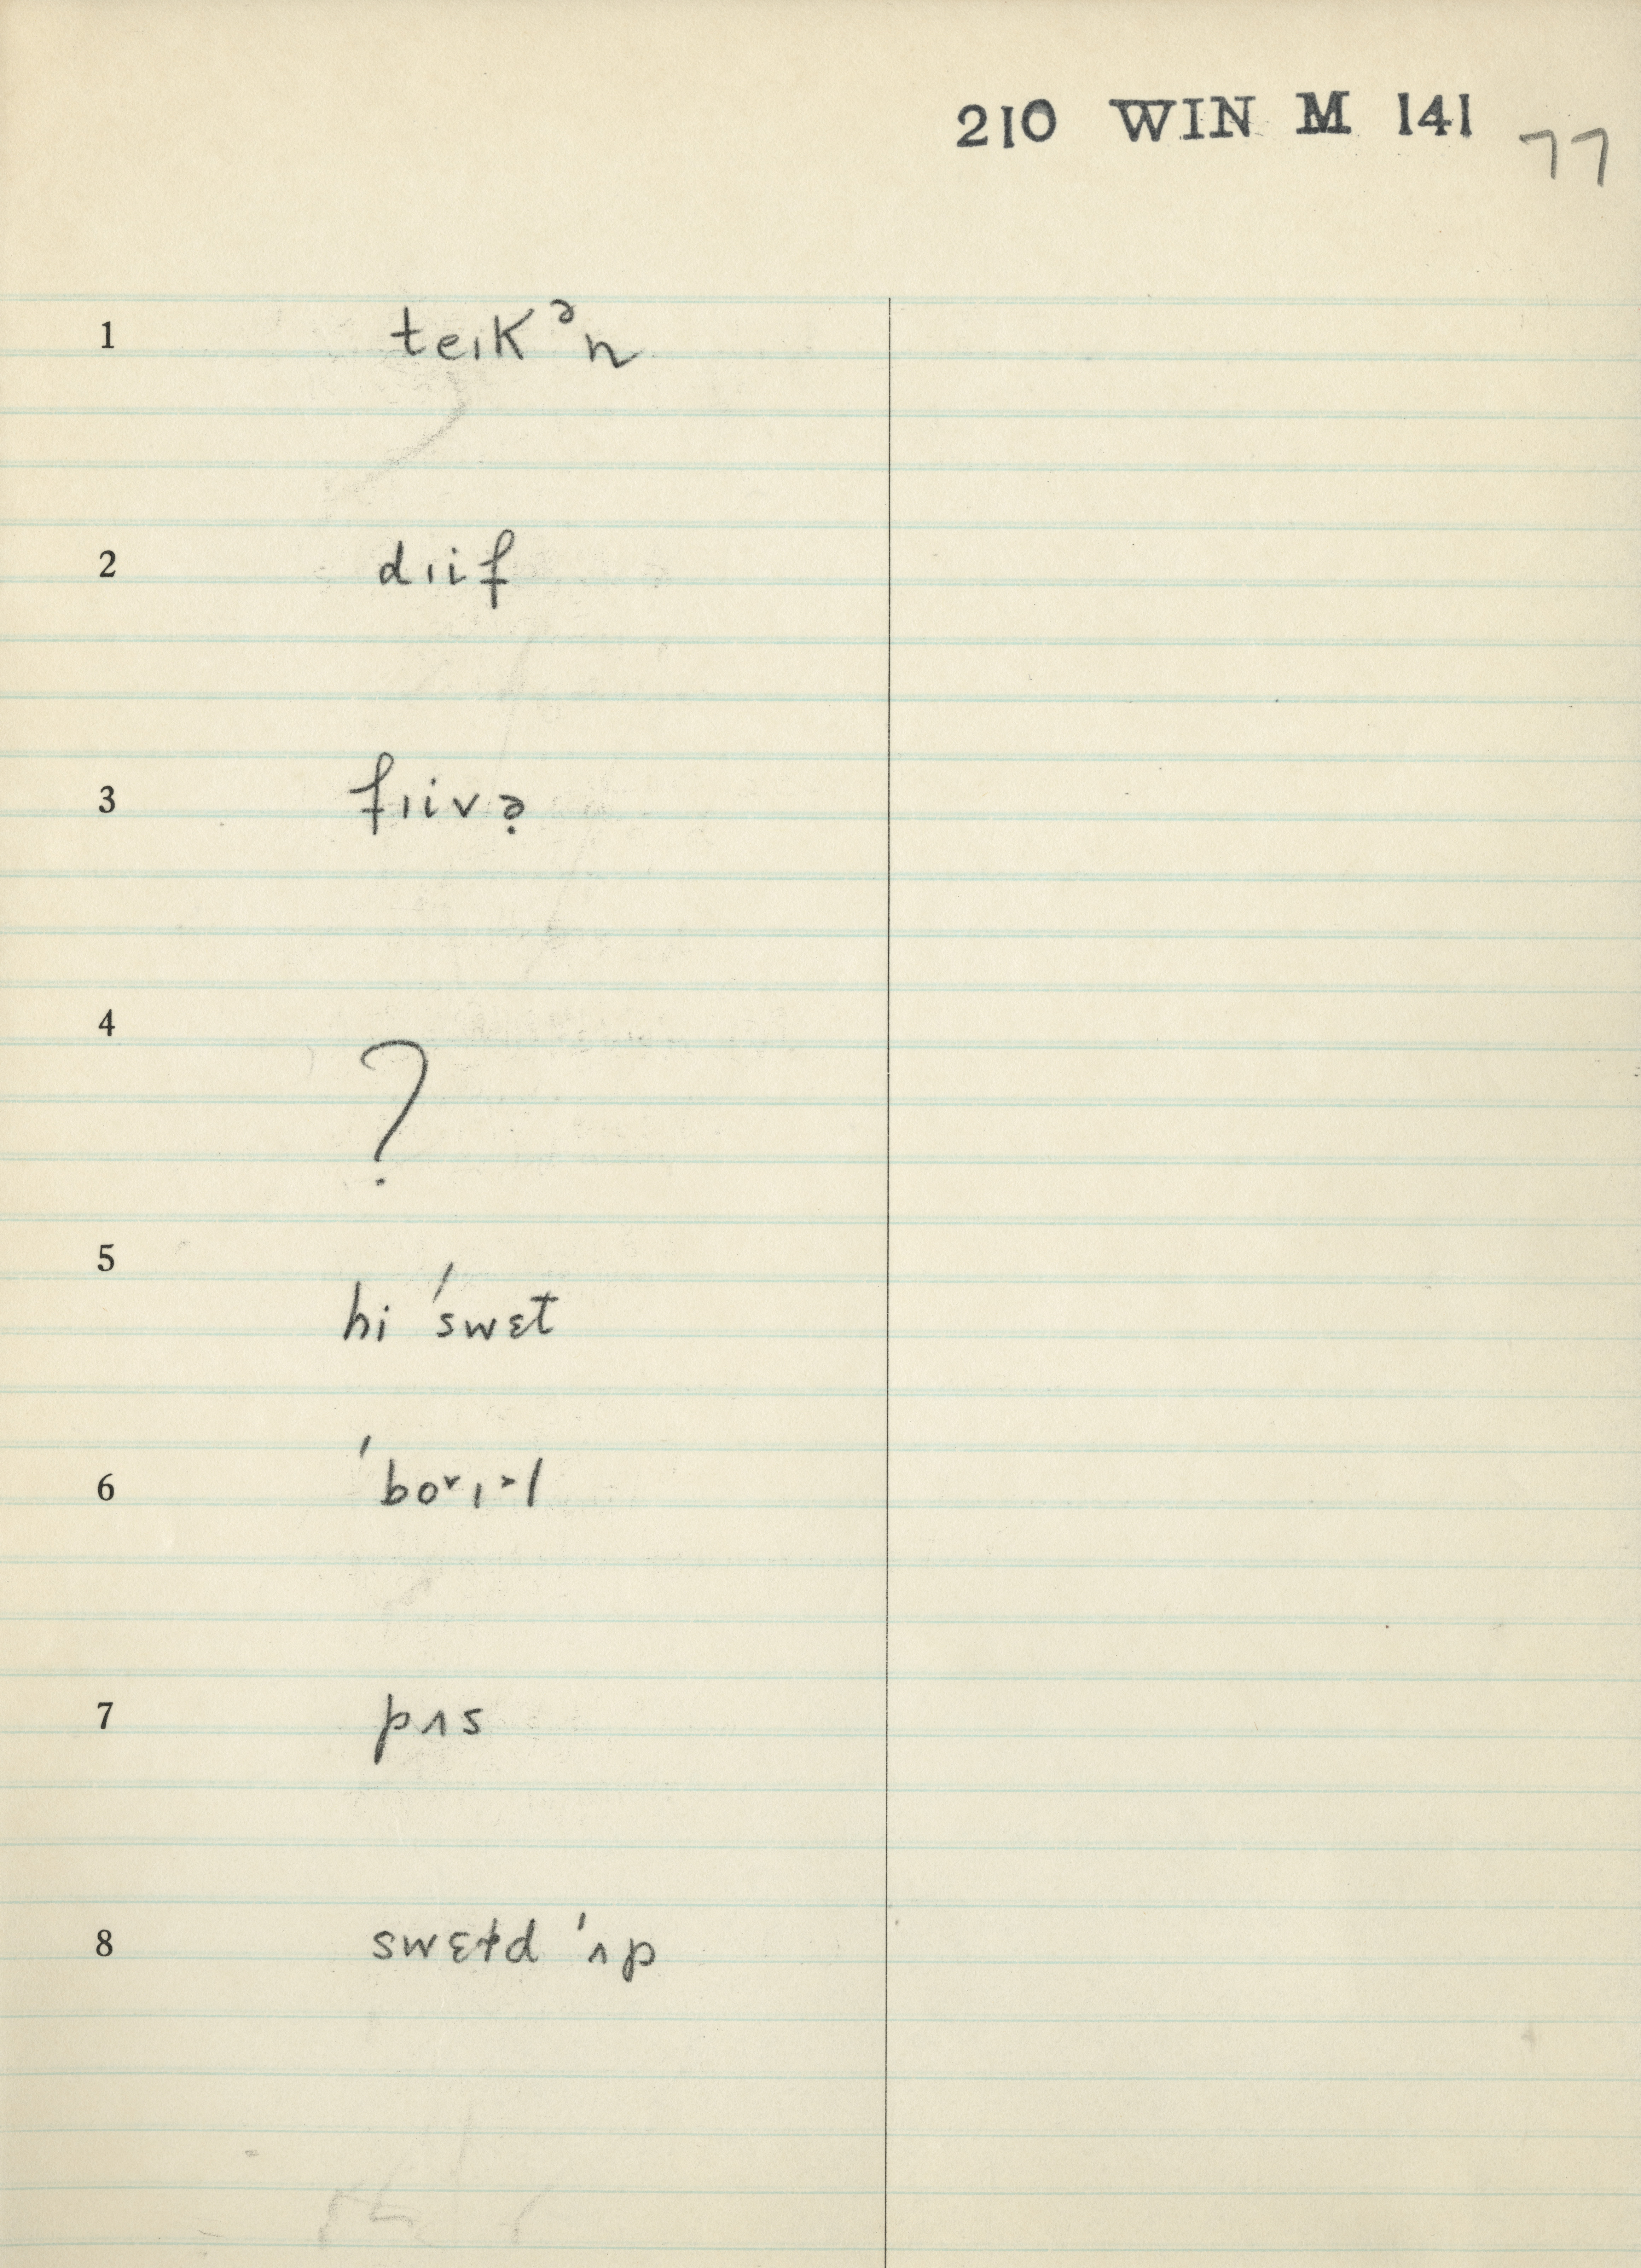 210 WIN M 141 77
1 teɪkᵊn
2 dɪif
3 fɪivə̣
4 ?
5 hi ˈswɛt
6 ˈbo˅ɪ˃l
7 pʌs
8 swɛtd ˈʌp